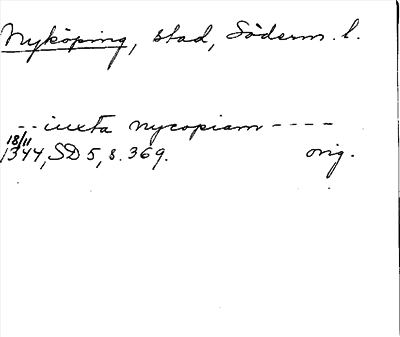 Nyköping, stad, Söderm. l.
-- iuxta nycopiam ----
18/11
1344, SD 5, s. 369. orig.